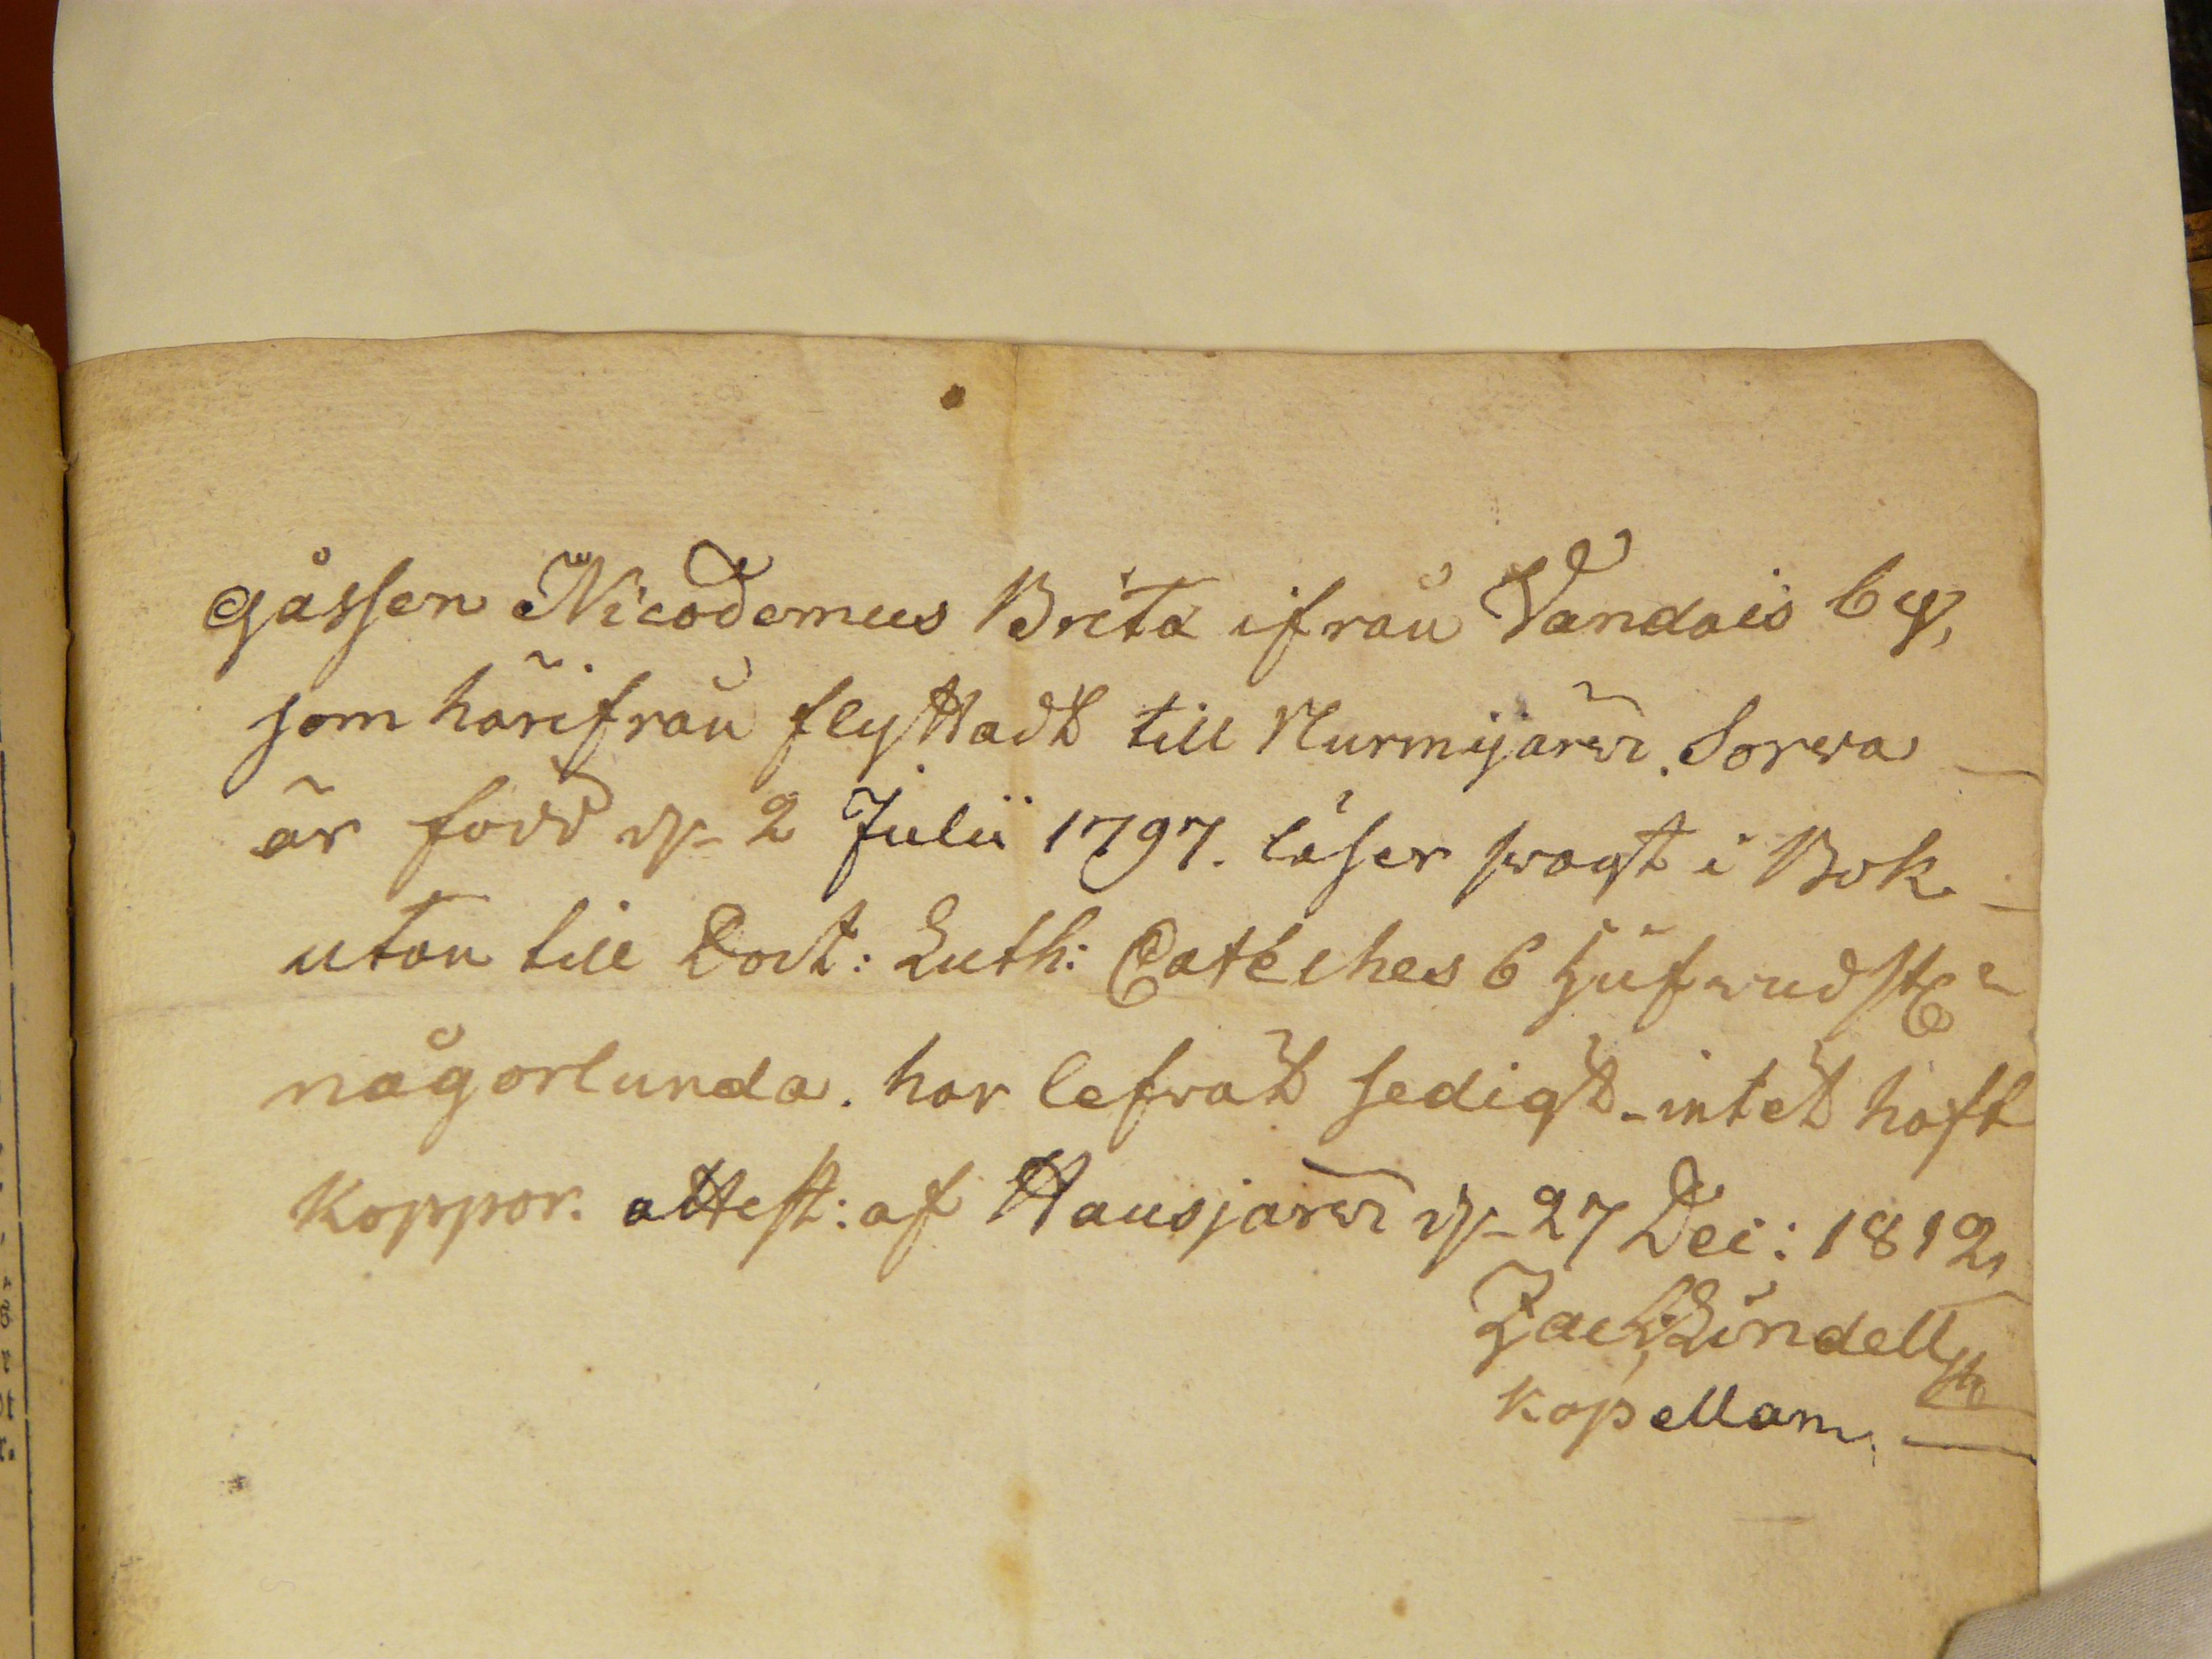 Gåssen Nicodemus Brita ifrån Vandais by,
som härifrån flyttadt till Nurmijärwi Sorwa
är född d. 2 Julii 1797. läser swagt i Bok
utan till Doct: Luth: Cateches 6 hufwudst
någorlunda. har lefwat sedigt - intet haft
Koppor. attest: af Hausjärwi d. 27 Dec: 1812,
Zach: Lindell
Kapellan.